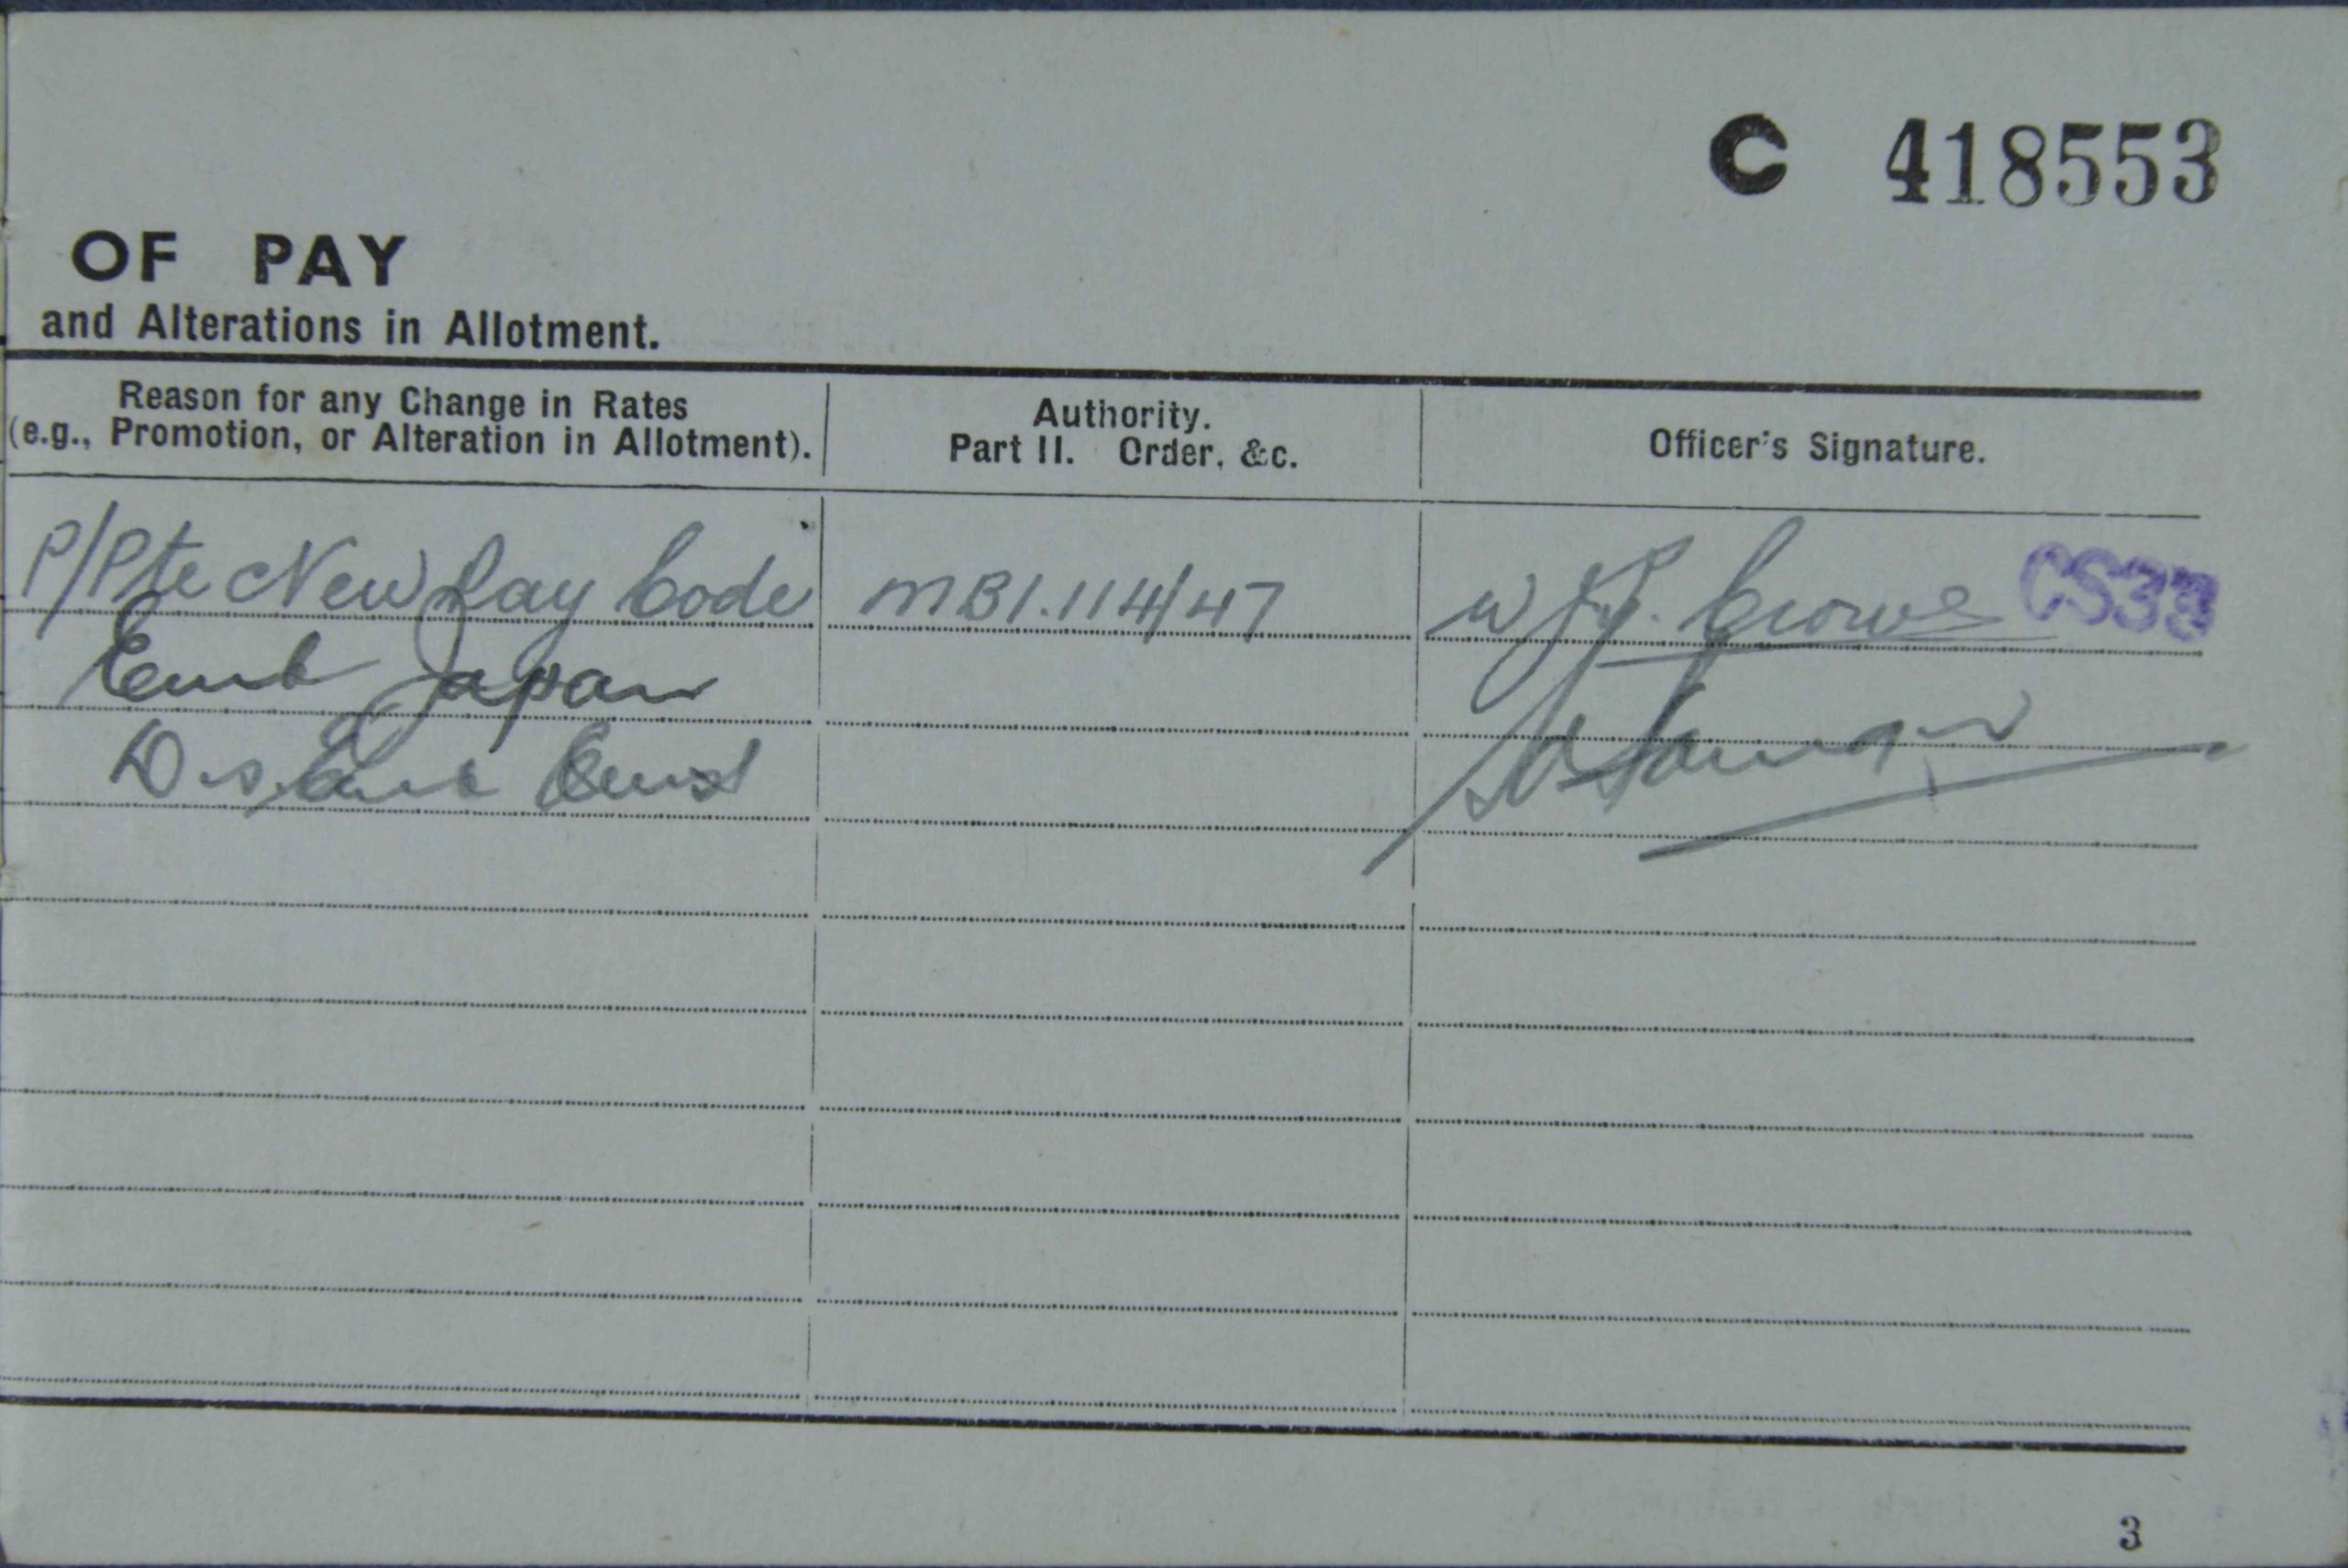 C 418553
OF PAY
and Alterations in Allotment.
Reason for any Change in Rates
(e.g., Promotion, or Alteration in Allotment).
Authority.
Part II. Order, &c.
Officer's Signature.
P/Pte New Pay Code
MBI.114/47
Crowe CS33
Emb Japan
3